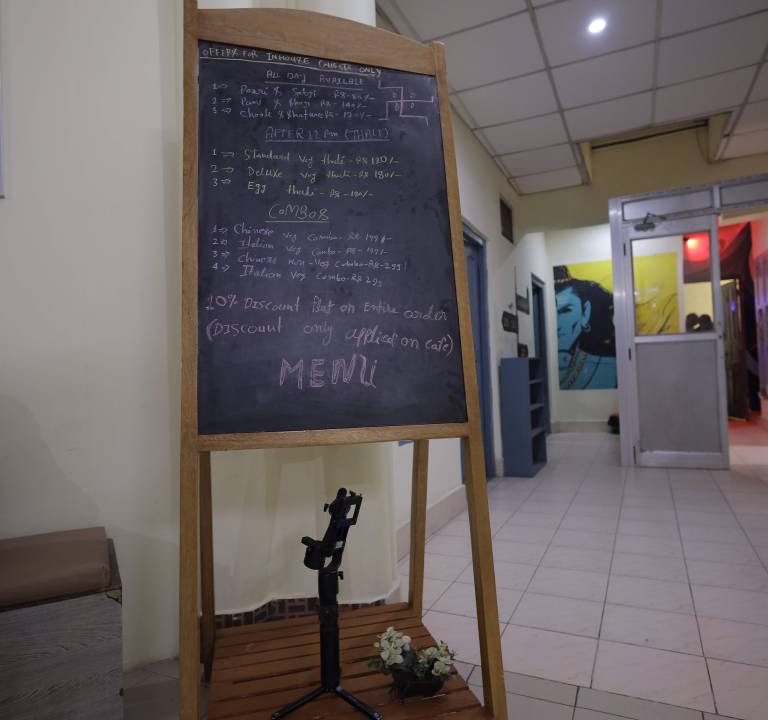 OFFERS FOR INHOUSE GUESTS ONLY
ALL DAY AVAILABLE
1⇒ Poori & Sabji RS-80/-
2⇒ Pav & Bhaji RS-140/-
3⇒ Choole & Bhature RS-120/-
AFTER 12 Pm (THALI)
1⇒ Standard Veg thali-RS 120/-
2⇒ Deluxe Veg thali-RS 180/-
3⇒ Egg thali-RS-180/-
COMBOS
1⇒ Chinese Veg Combo-RS-199/-
2⇒ Italian Veg Combo-RS-199/-
3⇒ Chinese Non-Veg Combo-RS-299/
4⇒ Italian Veg Combo-RS 299
10% DISCOUNT flat on Entire order
(DISCOUNT only applied on cafe)
MENU